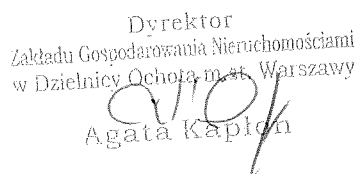 Dyrektor
Zakładu Gospodarowania Nieruchomościami
w Dzielnicy Ochota m.st. Warszawy
Agata Kapłon